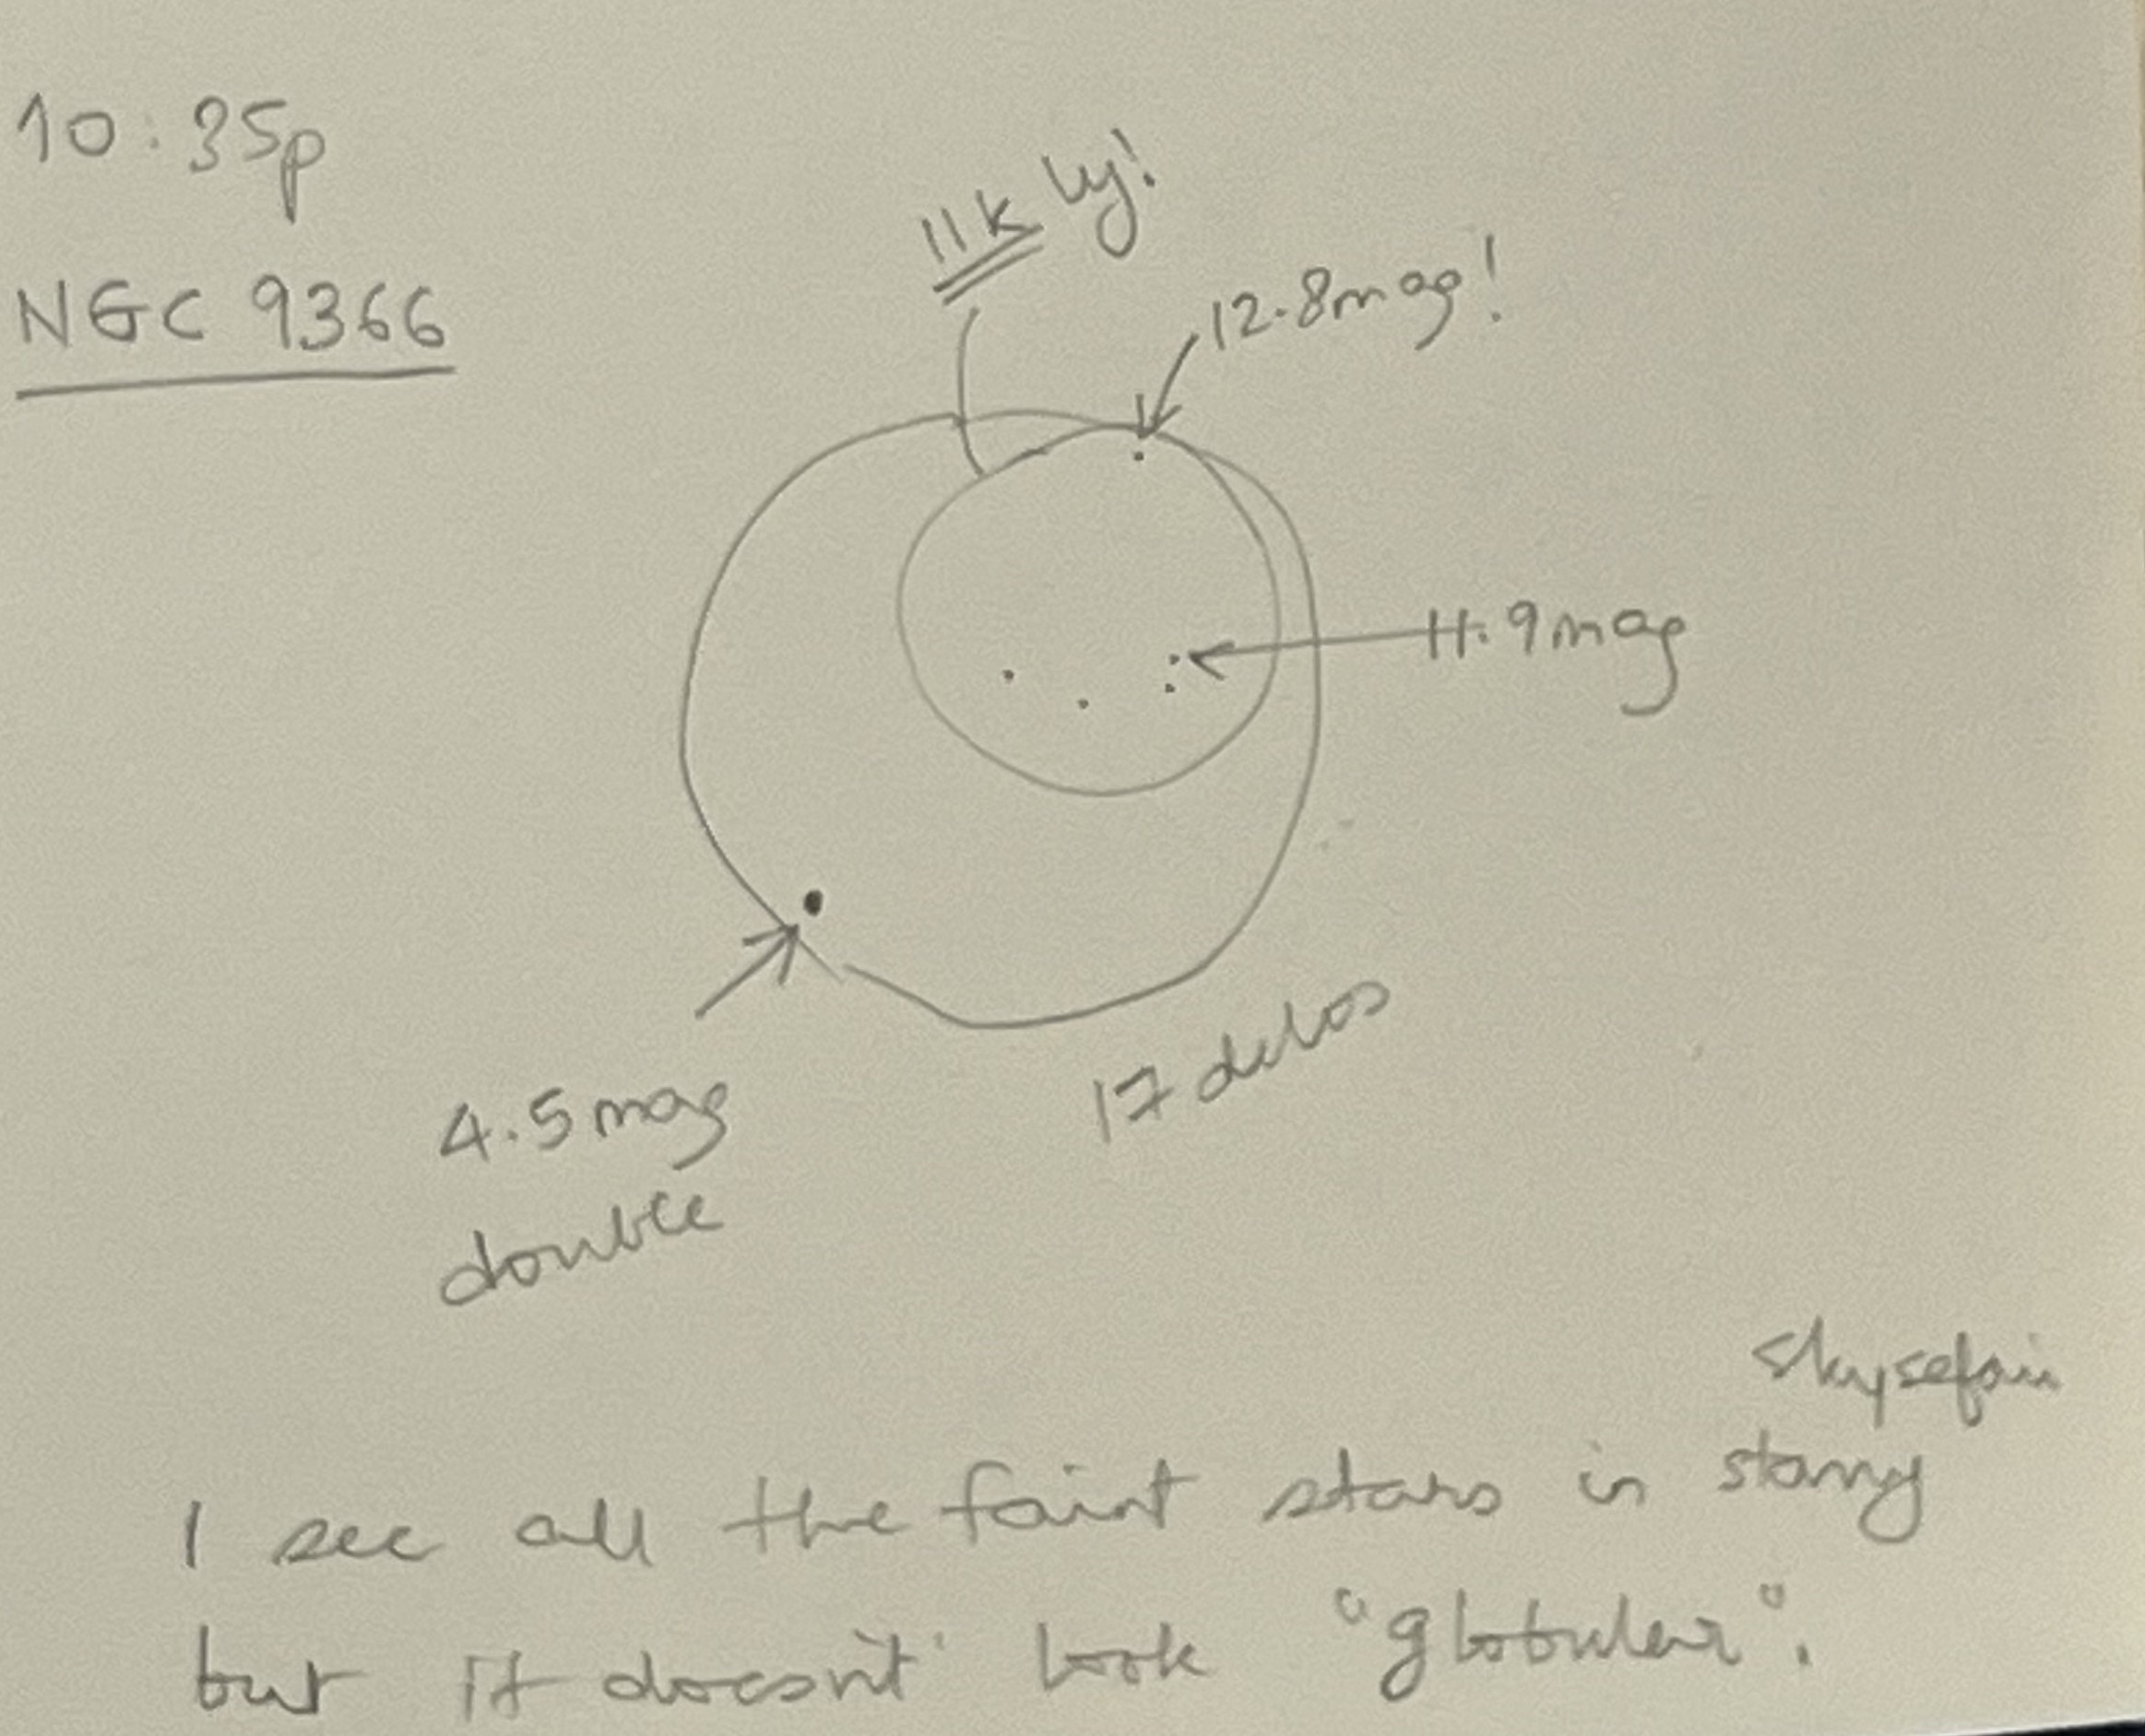 10:35p
NGC 9366
11k ly!
12.8mag!
11.9mag
4.5mag
double
17 delos
I see all the faint stars in starry
but it doesn't look "globular".